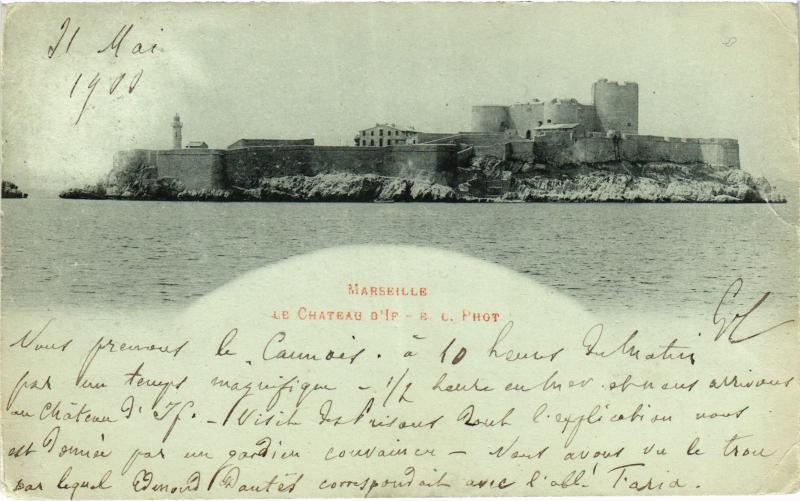 31 Mai
1900
MARSEILLE
LE CHATEAU D'IF - E. L. PHOT
Nous prenons le "Cannois. à 10 heures du Matin
par un temps magnifique - 1/2 heure en Mer. et nous arrivons
au Château d'If. - Visite des Prisons dont l'explication nous
est donnée par un gardien convaincu - Nous avons vu le trou
par lequel Edmond Dantès correspondait avec l'abbé Faria.